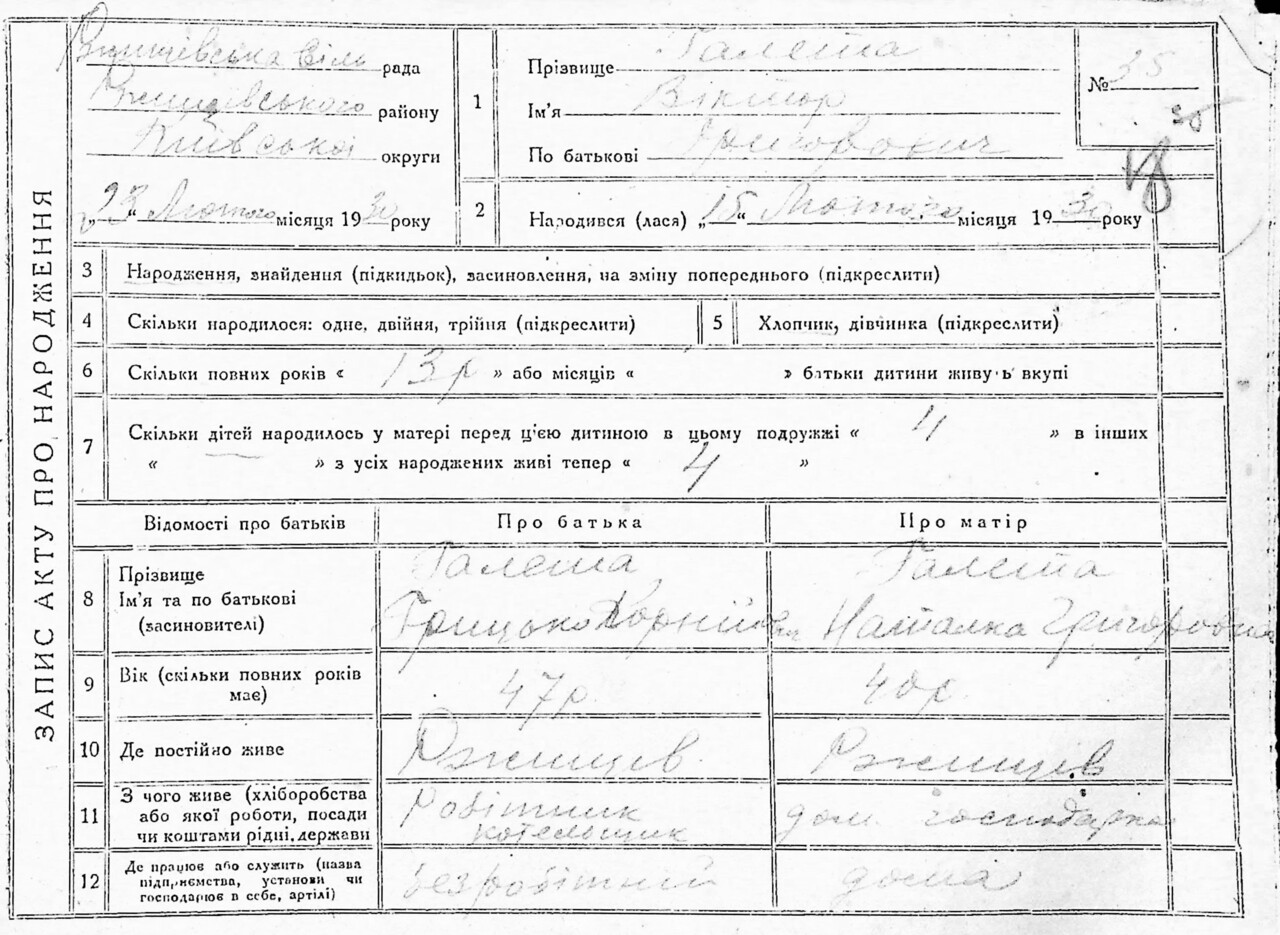 ЗАПИС АКТУ ПРО НАРОДЖЕННЯ
Ржищівська сіль рада
Ржищівського району
Київська округи
„23“ Лютого місяця 1930 року
1
Прізвище Галета
Ім'я Віктор
По батькові Григорович
№ 35
35
2
Народився (лася) „15“ Лютого місяця 1930 року
3 Народження, знайдення (підкидьок), засиновлення, на зміну попереднього (підкреслити)
4 Скільки народилося: одне, двійня, трійня (підкреслити)
5 Хлопчик, дівчинка (підкреслити)
6 Скільки повних років « 13 р » або місяців « » батьки дитини живуть вкупі
7 Скільки дітей народилось у матері перед ц'єю дитиною в цьому подружжі « 4 » в інших
« » з усіх народжених живі тепер « 4 »
Відомості про батьків Про батька Про матір
8
Прізвище
Ім'я та по батькові
(засиновителі)
Галета
Грицько Корнійов
Галета
Наталка Григоровна
9
Вік (скільки повних років
має)
47р.
40р.
10 Де постійно живе Ржищев Ржищів
11
З чого живе (хліборобства
або якої роботи, посади
чи коштами рідні, держави
Робітник
котельщик
дом. господарка
12
Де працює або служить (назва
підприємства, установи чи
господарює в себе, артілі)
безробітний
дома